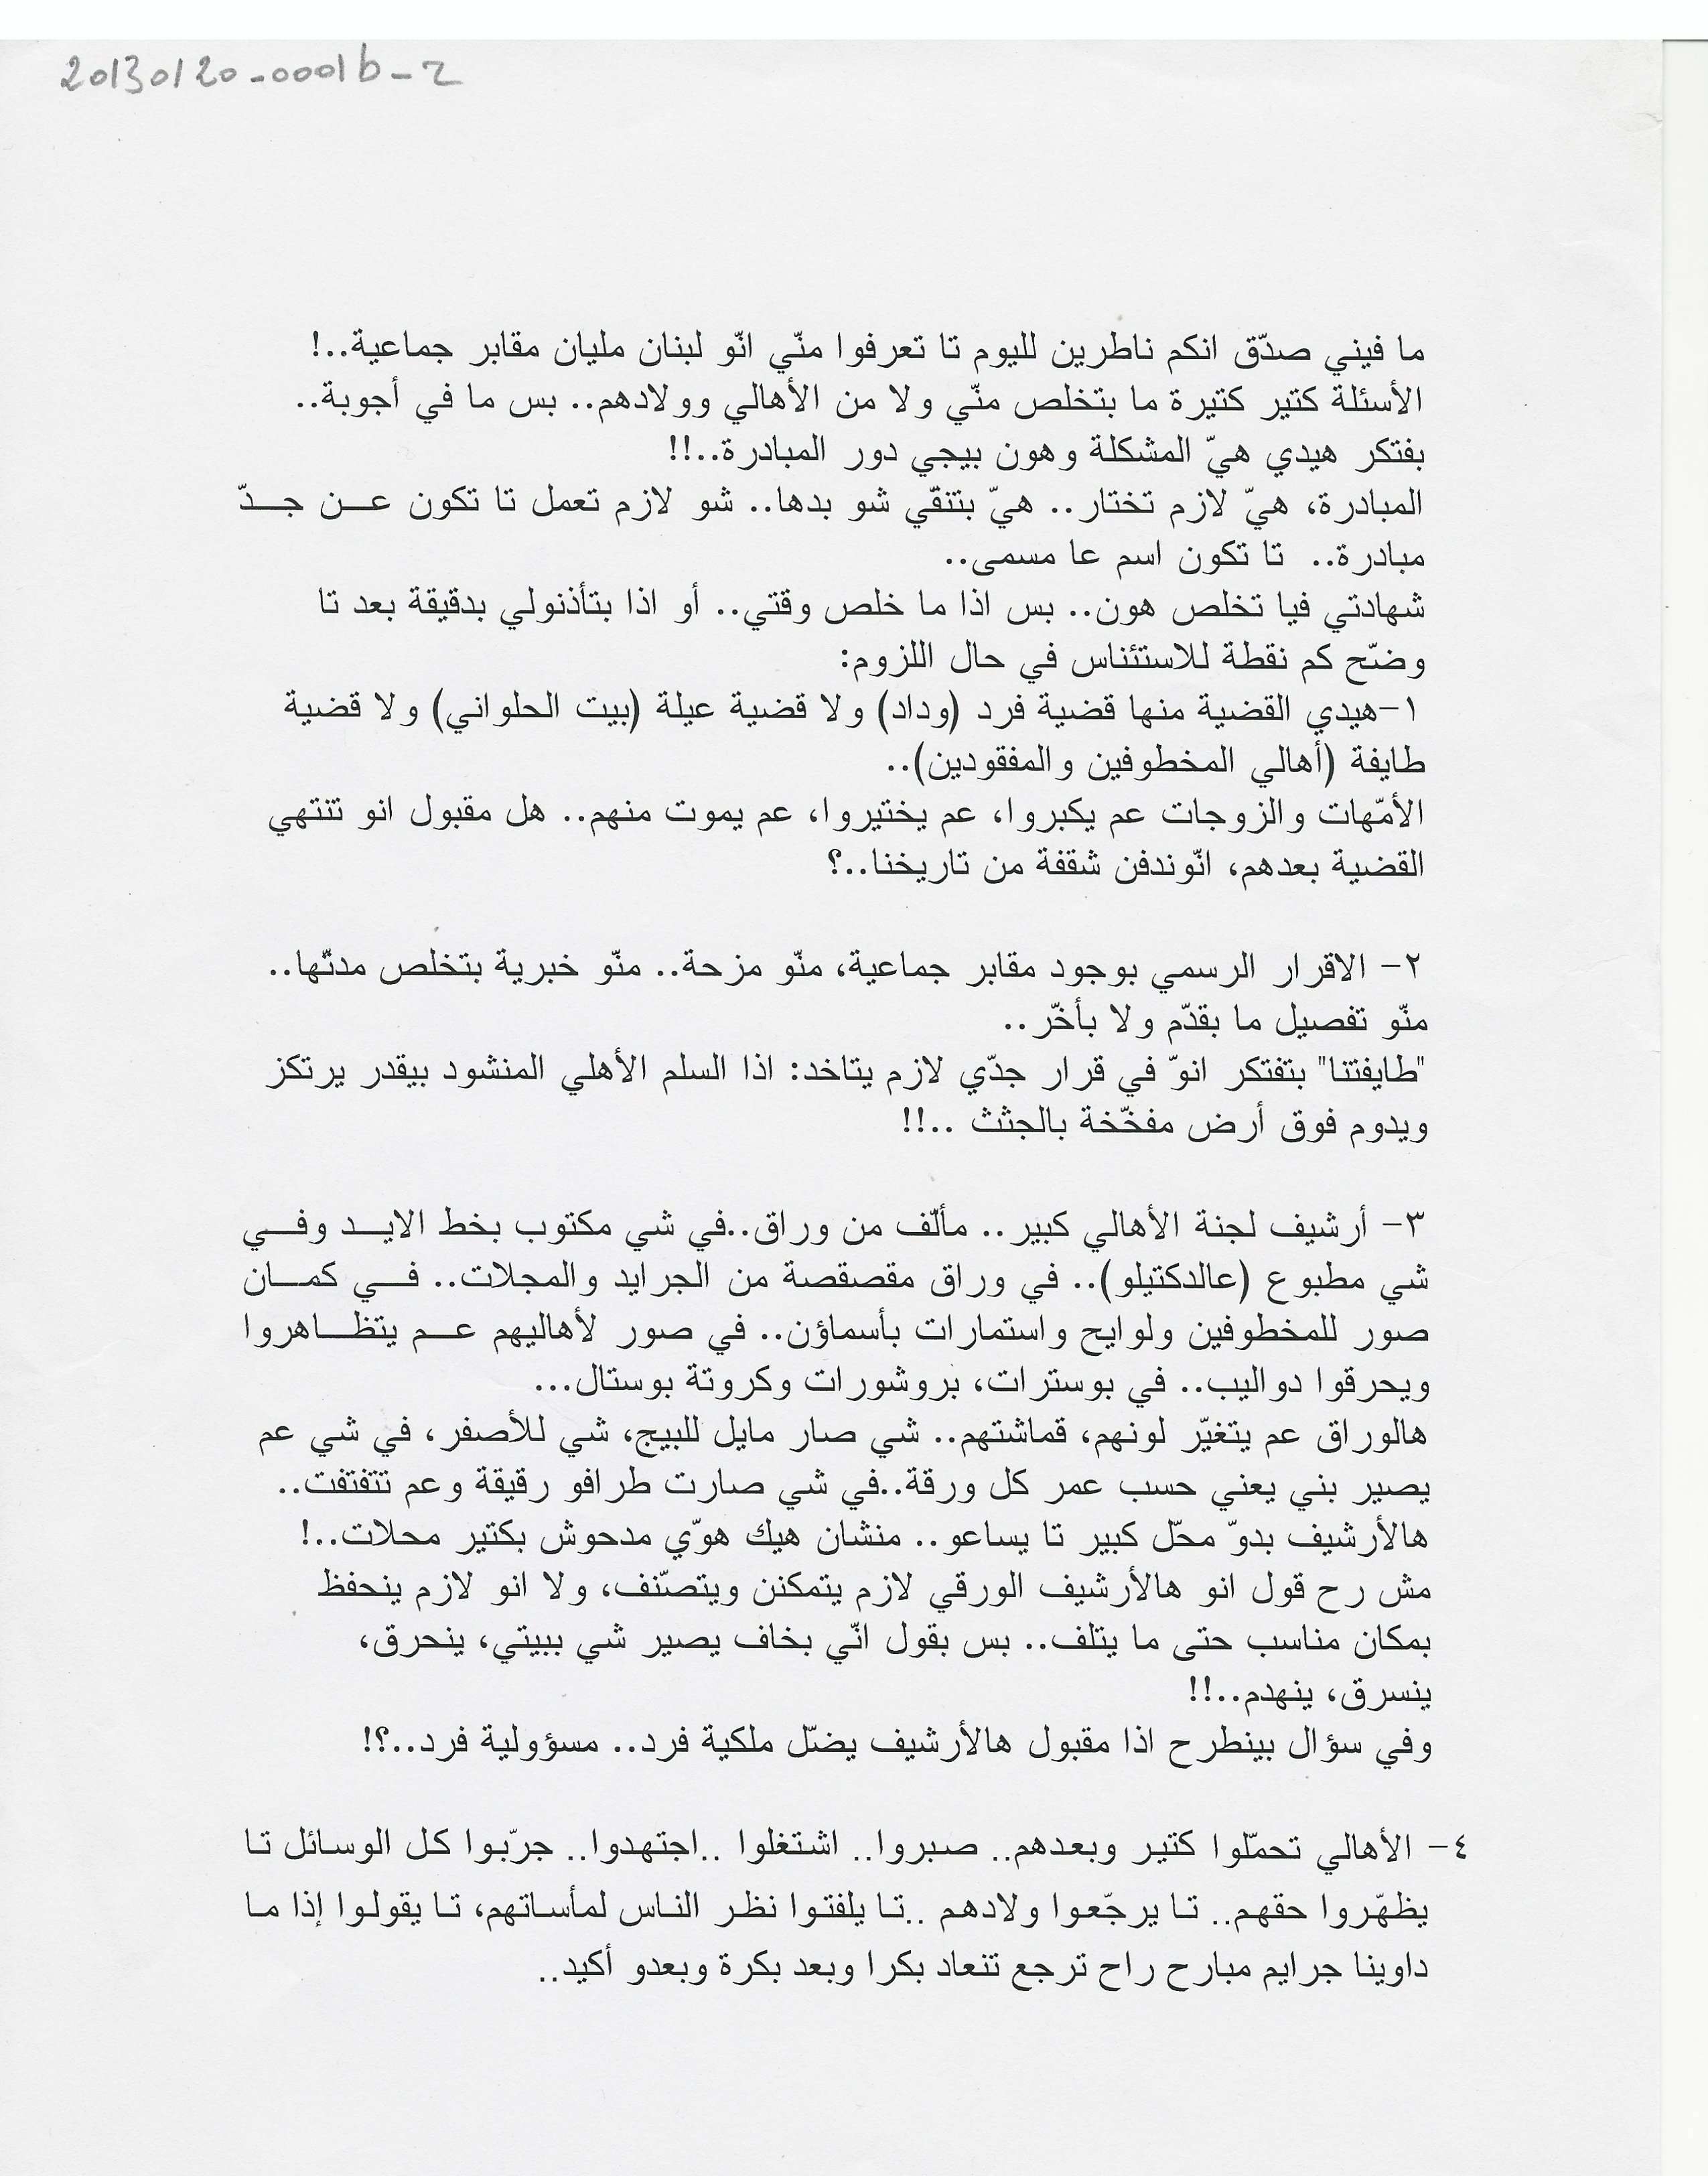 20130120-0001b-2
ما فيني صدّق انكم ناطرين لليوم تا تعرفوا منّي انّو لبنان مليان مقابر جماعية..!
الأسئلة كتير كتيرة ما بتخلص منّي ولا من الأهالي وولادهم.. بس ما في أجوبة..
بفتكر هيدي هيّ المشكلة وهون بيجي دور المبادرة..!!
المبادرة، هيّ لازم تختار.. هيّ بتنقّي شو بدها.. شو لازم تعمل تا تكون عن جدّ
مبادرة.. تا تكون اسم عا مسمى..
شهادتي فيا تخلص هون.. بس اذا ما خلص وقتي.. أو اذا بتأذنولي بدقيقة بعد تا
وضّح كم نقطة للاستئناس في حال اللزوم:
١-هيدي القضية منها قضية فرد (وداد) ولا قضية عيلة (بيت الحلواني) ولا قضية
طايفة (أهالي المخطوفين والمفقودين)..
الأمّهات والزوجات عم يكبروا، عم يختيروا، عم يموت منهم.. هل مقبول انو تنتهي
القضية بعدهم، انّوندفن شقفة من تاريخنا..؟
٢- الاقرار الرسمي بوجود مقابر جماعية، منّو مزحة.. منّو خبرية بتخلص مدتّها..
منّو تفصيل ما بقدّم ولا بأخّر..
"طايفتنا" بتفتكر انوّ في قرار جدّي لازم يتاخد: اذا السلم الأهلي المنشود بيقدر يرتكز
ويدوم فوق أرض مفخّخة بالجثث ..!!
٣- أرشيف لجنة الأهالي كبير.. مألّف من وراق..في شي مكتوب بخط الايد وفي
شي مطبوع (عالدكتيلو).. في وراق مقصقصة من الجرايد والمجلات.. في كمان
صور للمخطوفين ولوايح واستمارات بأسماؤن.. في صور لأهاليهم عم يتظاهروا
ويحرقوا دواليب.. في بوسترات، بروشورات وكروتة بوستال...
هالوراق عم يتغيّر لونهم، قماشتهم.. شي صار مايل للبيج، شي للأصفر، في شي عم
يصير بني يعني حسب عمر كل ورقة..في شي صارت طرافو رقيقة وعم تتفتفت..
هالأرشيف بدوّ محّل كبير تا يساعو.. منشان هيك هوّي مدحوش بكتير محلات..!
مش رح قول انو هالأرشيف الورقي لازم يتمكنن ويتصّنف، ولا انو لازم ينحفظ
بمكان مناسب حتى ما يتلف.. بس بقول انّي بخاف يصير شي ببيتي، ينحرق،
ينسرق، ينهدم..!!
وفي سؤال بينطرح اذا مقبول هالأرشيف يضّل ملكية فرد.. مسؤولية فرد..؟!
٤- الأهالي تحمّلوا كتير وبعدهم.. صبروا.. اشتغلوا ..اجتهدوا.. جرّبوا كل الوسائل تا
يظهّروا حقهم.. تا يرجّعوا ولادهم ..تا يلفتوا نظر الناس لمأساتهم، تا يقولوا إذا ما
داوينا جرايم مبارح راح ترجع تنعاد بكرا وبعد بكرة وبعدو أكيد..